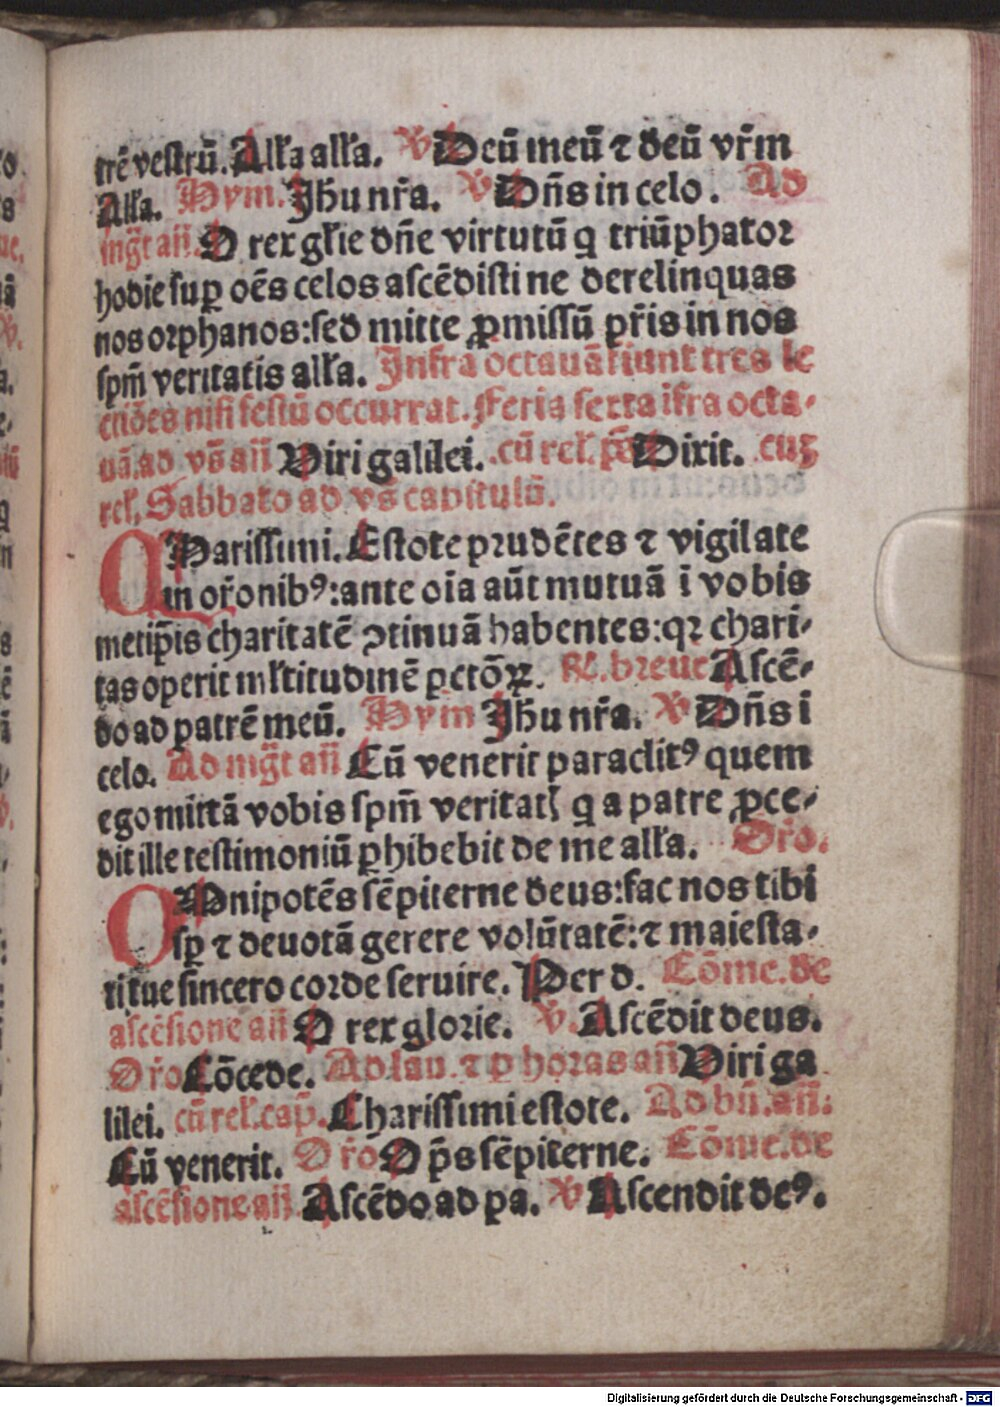 trē vestrū. Alľa alľa. ℣ Deū meū ⁊ deū vr̄m
Alľa. Hym. Jhu nr̄a. ℣ Dn̄s in celo. Ad
mg̃t an̄. O rex gľie dn̄e virtutū q triūphator
hodie suꝑ oēs celos ascēdisti ne derelinquas
nos orphanos: sed mitte ꝓmissū pr̄is in nos
spm̄ veritatis alľa. Infra octauā fiunt tres le
ctiōes nisi festū occurrat. Feria sexta ifra octa-
uā. ad vs̄ an̄ Viri galilei. cū reľ. ps̄ Dixit. cuʒ
reľ. Sabbato ad vs̄ capitulū.
CHarissimi. Estote prudētes ⁊ vigilate
in or̄onibꝰ: ante oīa aūt mutuā ī vobis
metip̄is charitatē ꝯtinuā habentes: qꝛ chari-
tas operit mľtitudinē pctōꝝ. ℟. breue Ascē-
do ad patrē meū. Hym Jhu nr̄a. ℣ Dn̄s i
celo. Ad mg̃t an̄ Cū venerit paraclitꝰ quem
ego mittā vobis spm̄ veritatꝭ q a patre ꝓce-
dit ille testimoniū ꝑhibebit de me alľa. Or̄o.
OMnipotēs sēpiterne deus: fac nos tibi
sꝑ ⁊ deuotā gerere volūtatē: ⁊ maiesta-
ti tue sincero corde seruire. Per d. Cōme. de
ascēsione an̄ O rex glorie. ℣. Ascēdit deus.
Or̄o Cōcede. Ad lau. ⁊ ꝑ horas an̄ Viri ga
lilei. cū reľ. cap̄. Charissimi estote. Ad bn̄. an̄.
Cū venerit. Or̄o O p̄s sēpiterne. Cōme. de
ascēsione an̄ Ascēdo ad pa. ℣ Ascendit deꝰ.
Digitalisierung gefördert durch die Deutsche Forschungsgemeinschaft - DFG